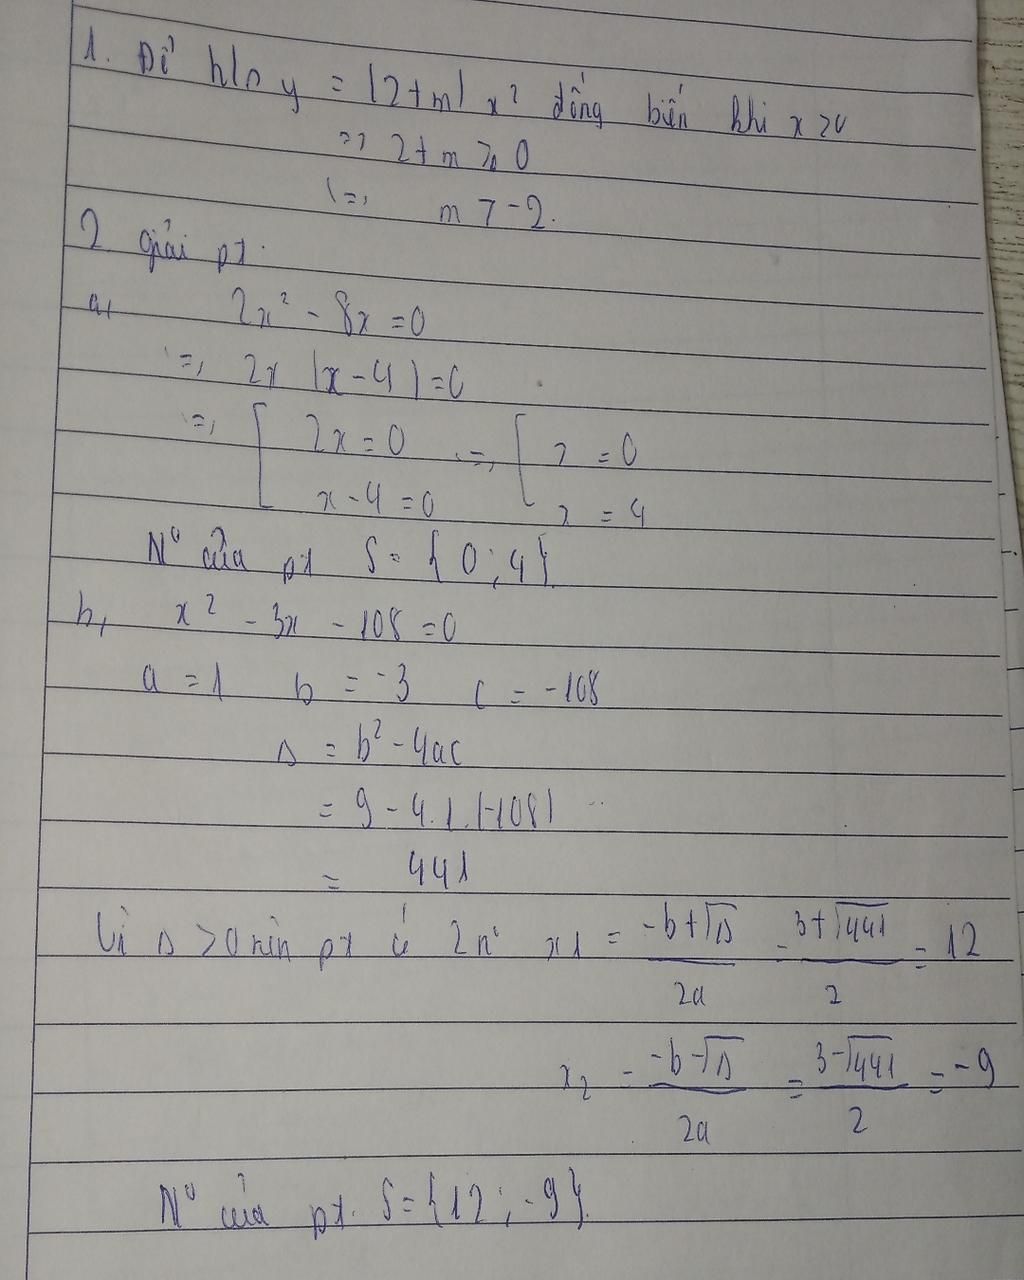 1. Để h/s y = (2+m) x² đồng biến khi x>0
=> 2+m > 0
<=> m > -2.
2 giải pt.
a, 2x² - 8x = 0
<=> 2x (x-4) = 0
<=> [ 2x = 0 <=> [ x = 0
x - 4 = 0 x = 4
N⁰ của pt S = {0; 4}
b, x² - 3x - 108 = 0
a = 1 b = -3 c = -108
Δ = b² - 4ac
= 9 - 4.1.(-108)
= 441
Vì Δ > 0 nên pt có 2 n⁰ x1 = (-b+√Δ)/2a = (3+√441)/2 = 12
x2 = (-b-√Δ)/2a = (3-√441)/2 = -9
N⁰ của pt. S = {12; -9}.